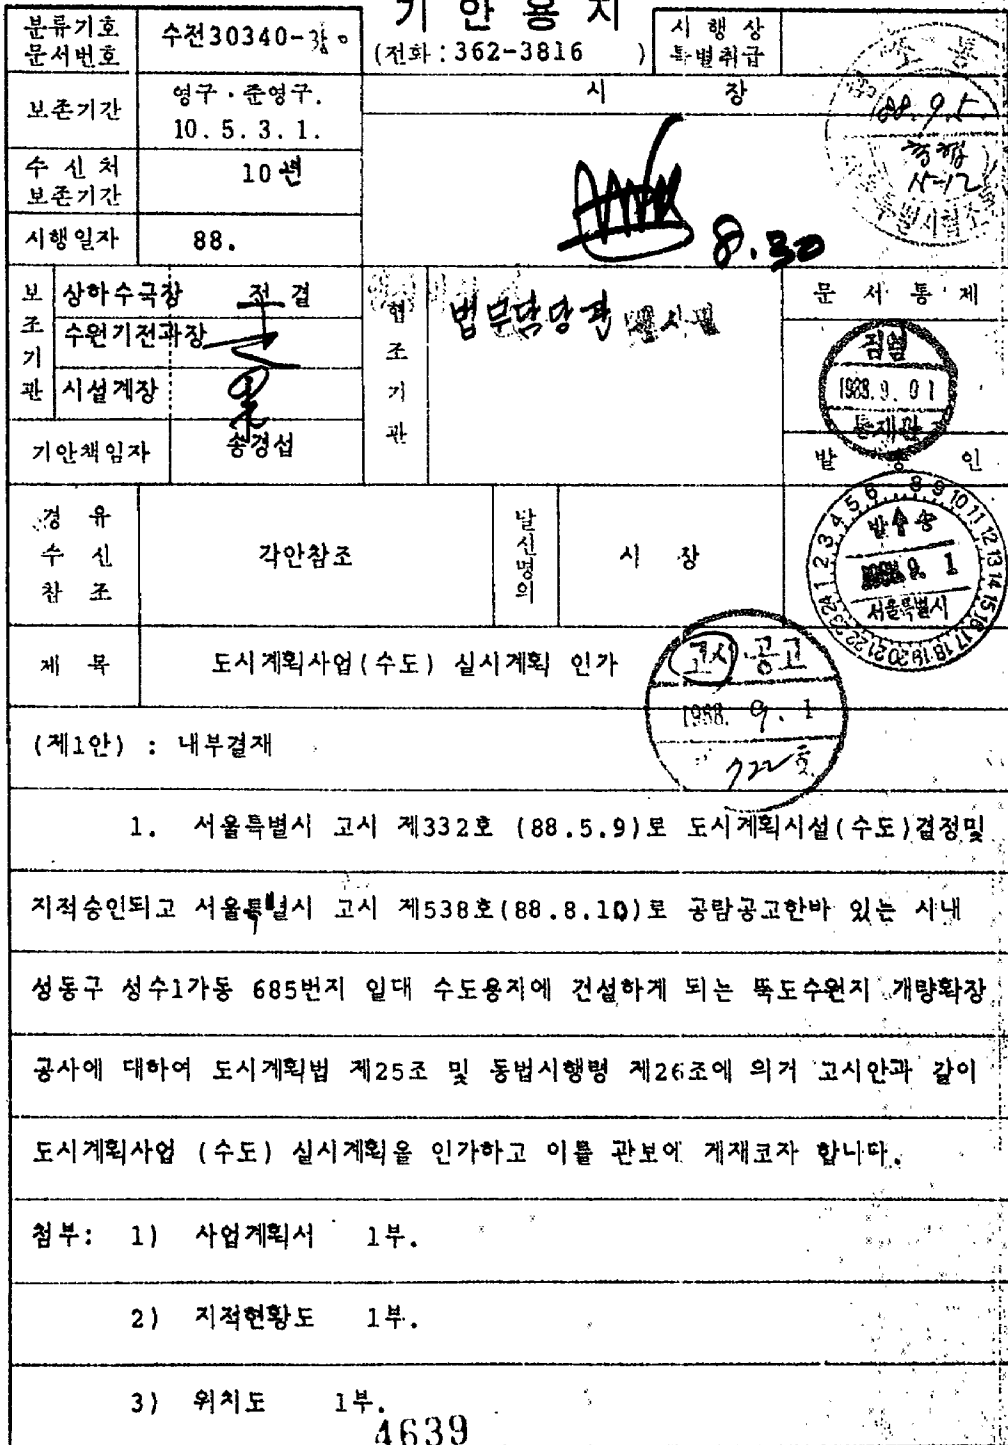 기 안 용 지
(전화 : 362-3816 )
분류기호
문서번호
수전30340-
시 행 상
특별취급
보존기간
영구 · 준영구.
10. 5. 3. 1.
시 장
수 신 처
보존기간
10 년
시행일자
88.
8.30
88. 9. 5.
보조기관
상하수국장 전 결
수원기전과장
시설계장
기안책임자
송경섭
협조기관
법무담당관
문 서 통 제
검열
1988. 9. 01
통제관
발 송 인
발 송
1988. 9. 1
서울특별시
경 유
수 신
참 조
각안참조
발신명의
시 장
제 목
도시계획사업(수도) 실시계획 인가
고시·공고
1988. 9. 1
722호
(제1안) : 내부결재
1. 서울특별시 고시 제332호 (88.5.9)로 도시계획시설(수도)결정및
지적승인되고 서울특별시 고시 제538호(88.8.10)로 공람공고한바 있는 시내
성동구 성수1가동 685번지 일대 수도용지에 건설하게 되는 뚝도수원지 개량확장
공사에 대하여 도시계획법 제25조 및 동법시행령 제26조에 의거 고시안과 같이
도시계획사업 (수도) 실시계획을 인가하고 이를 관보에 게재코자 합니다.
첨부: 1) 사업계획서 1부.
2) 지적현황도 1부.
3) 위치도 1부.
4639